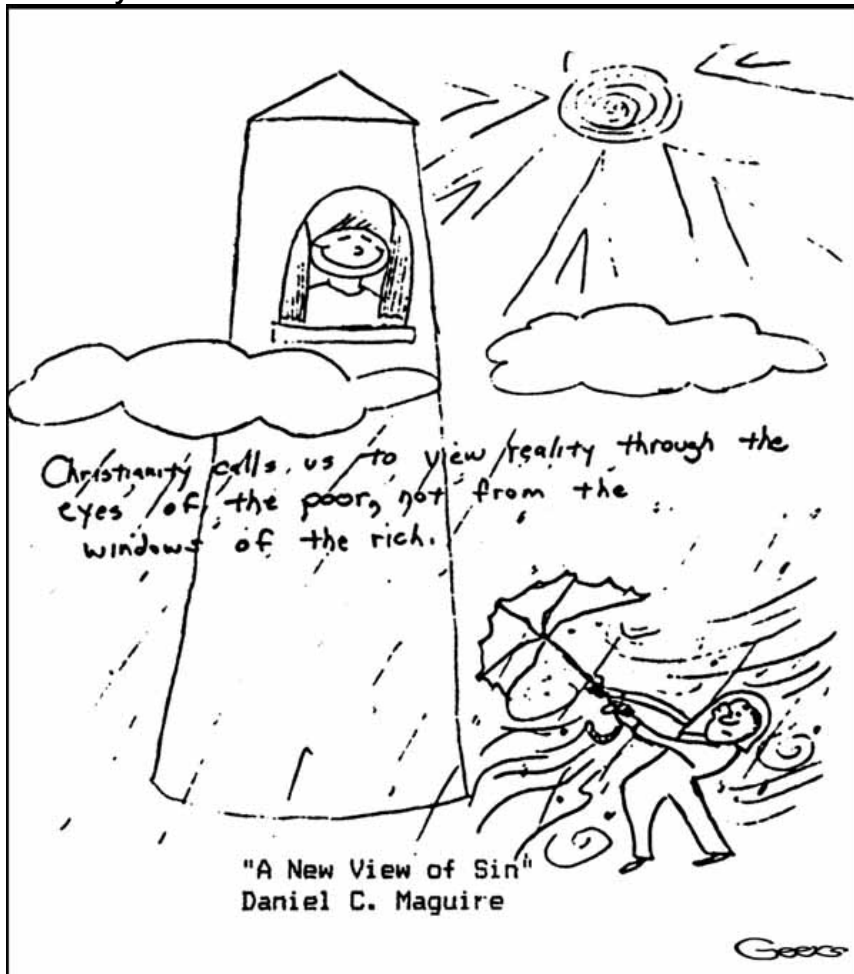 Christianity calls us to view reality through the
eyes of the poor, not from the
windows of the rich.
"A New View of Sin"
Daniel C. Maguire